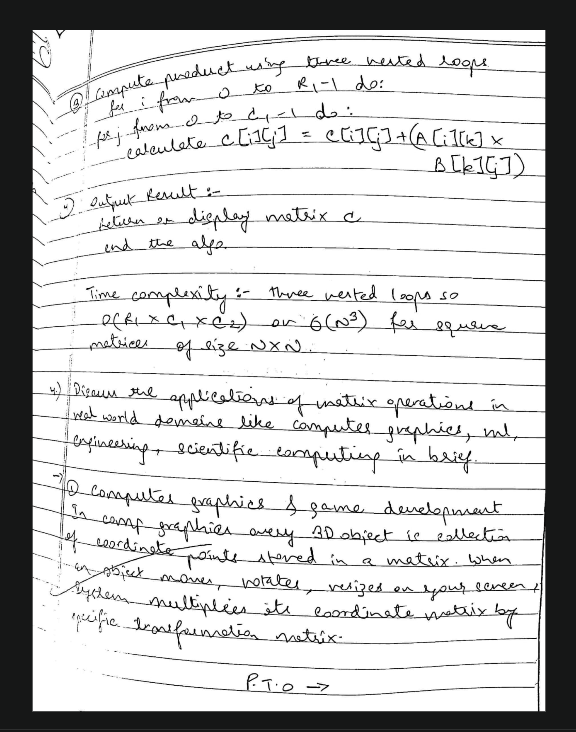 ③ Compute product using three nested loops
for i from 0 to R1-1 do:
for j from 0 to C1-1 do:
calculate C[i][j] = C[i][j]+(A[i][k] ×
B[k][j])
Output Result :-
Return or display matrix C
end the algo.
Time complexity :- three nested loops so
O(R1 × C1 × C2) or O(N³) for square
matrices of size N×N.
4.) Discuss the applications of matrix operations in
real world domains like computer graphics, ml,
engineering, scientific computing in brief.
→ ① Computer graphics & game development
In comp graphics every 3D object is collection
of coordinate points stored in a matrix. When
an object moves, rotates, resizes on your screen,
system multiplies its coordinate matrix by
specific transformation matrix.
P.T.O →